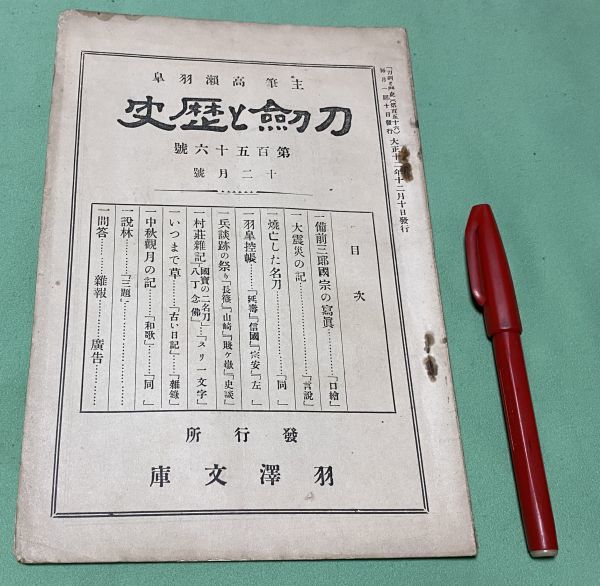 大正十二年十二月十日發行
主筆高瀨羽皐
刀劍と歷史
第百五十六號
十二月號
目次
一備前三郎國宗の寫眞………「口繪」
一大震災の記………「言說」
一燒亡した名刀………「同」
一羽皐控帳………「延壽」「信國」「宗安」「左」
一兵談跡の祭り「長篠」「山崎」「賤ケ嶽」「史談」
一村莊雜記「國寶の二名刀」「スリ一文字」「八丁念佛」
一いつまで草………「古い日記」………「雜錄」
一中秋觀月の記………「和歌」………「同」
一說林………「三題」………
一問答………雜報………廣告………
發行所
羽澤文庫